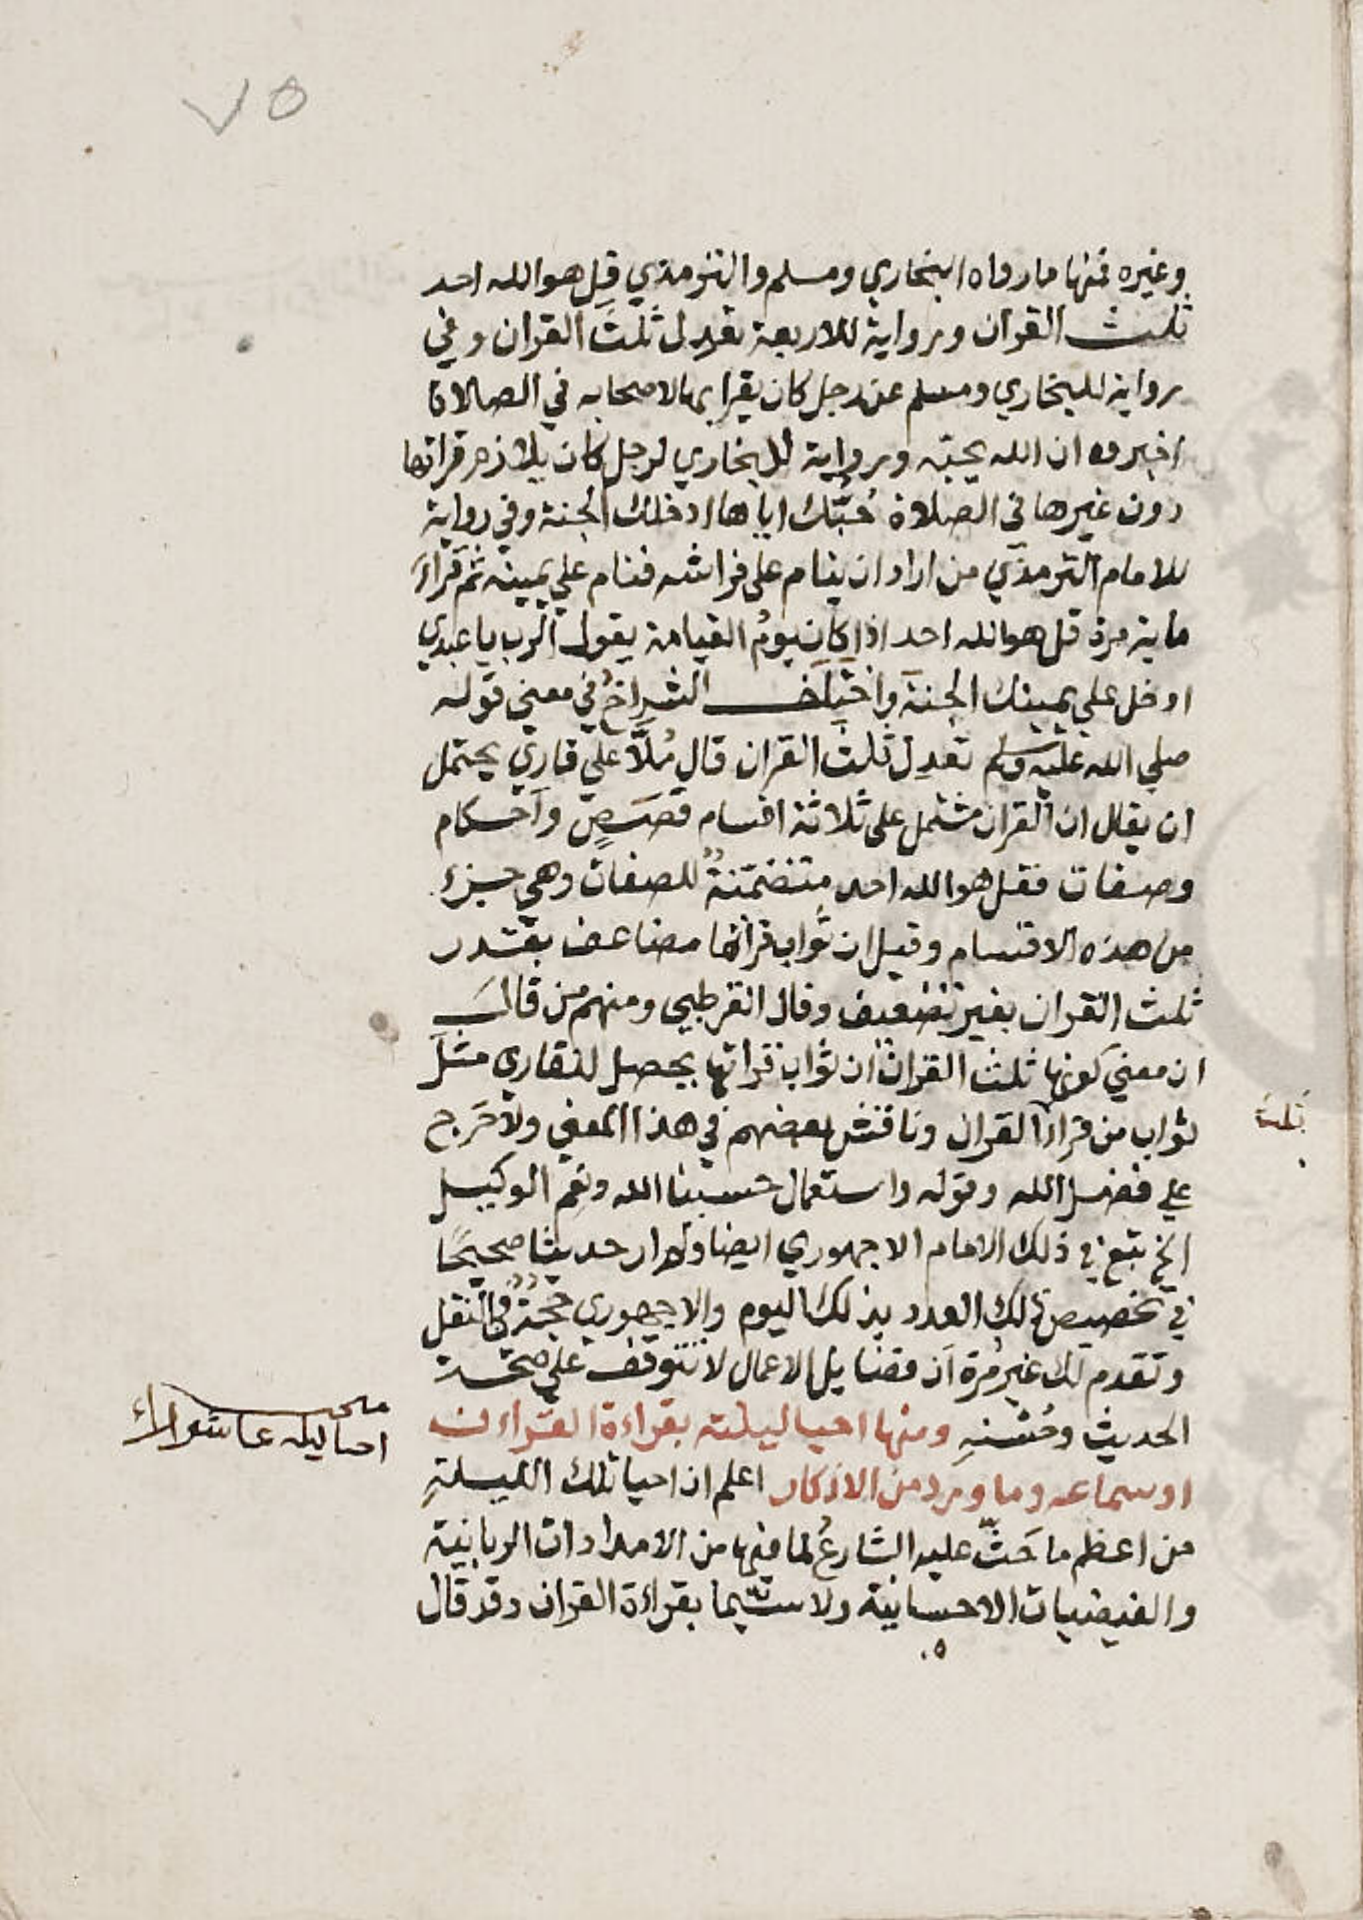 ٧٥
وغيره فمنها مارواه البخاري ومسلم والترمذي قل هو الله احد
ثلث القران وبرواية للاربعة تعدل ثلث القران وفي
رواية للبخاري ومسلم عن رجل كان يقرا بها لاصحابه في الصلاة
اخبروه ان الله يحبّه وبرواية للبخاري لرجل كان يلازم قراتها
دون غيرها في الصلاة حُبُّك اياها ادخلك الجنة وفي رواية
للامام الترمذي من اراد ان ينام على فراشه فنام علي يمينه ثم قراءَ
ماية مرة قل هو الله احد اذا كان يومُ القيامة يقول الرب يا عبدي
ادخل علي يمينك الجنةَ واختَلَفَ الشراحُ في معني قوله
صلي الله عليه وسلم تعدل ثلث القران قال مُلّا علي قاري يحتمل
ان يقال ان القران مشتمل على ثلاثة اقسام قصَصٍ واحكام
وصفات فقل هو الله احد متضمّنةٌ للصفات وهي جزء
من هذه الاقسام وقيل ان ثواب قراتها مضاعف بقدر
ثلث القران بغير تضعيف وقال القرطبي ومنهم من قال
ان معني كونها ثلث القران ان ثواب قراتها يحصل للقاري مثل
ثواب من قراء القران وناقش بعضهم في هذا المعني ولا حَرج
علي فضل الله وقوله واستعمال حسبنا الله ونعم الوكيل
الخ تبع في ذلك الامام الاجهوري ايضا ولم ار حديثا صحيحًا
في تخصيص ذلك العدد بذلك اليوم والاجهوري حجةٌ في النقل
وتقدم لك غير مُرة ان فضايل الاعمال لا تتوقف علي صحة
الحديث وحُسْنهِ ومنها احيا ليلته بقراءة القراءن
اوسماعه وما ورد من الاذكار اعلم ان احيا تلك الليلةِ
من اعظم ما حَثّ عليه الشارعُ لما فيها من الامدادات الربانية
والفيضيات الاحسانية ولا سيّما بقراءة القران وقد قال
ثلث
احيا ليلة عاشوراء